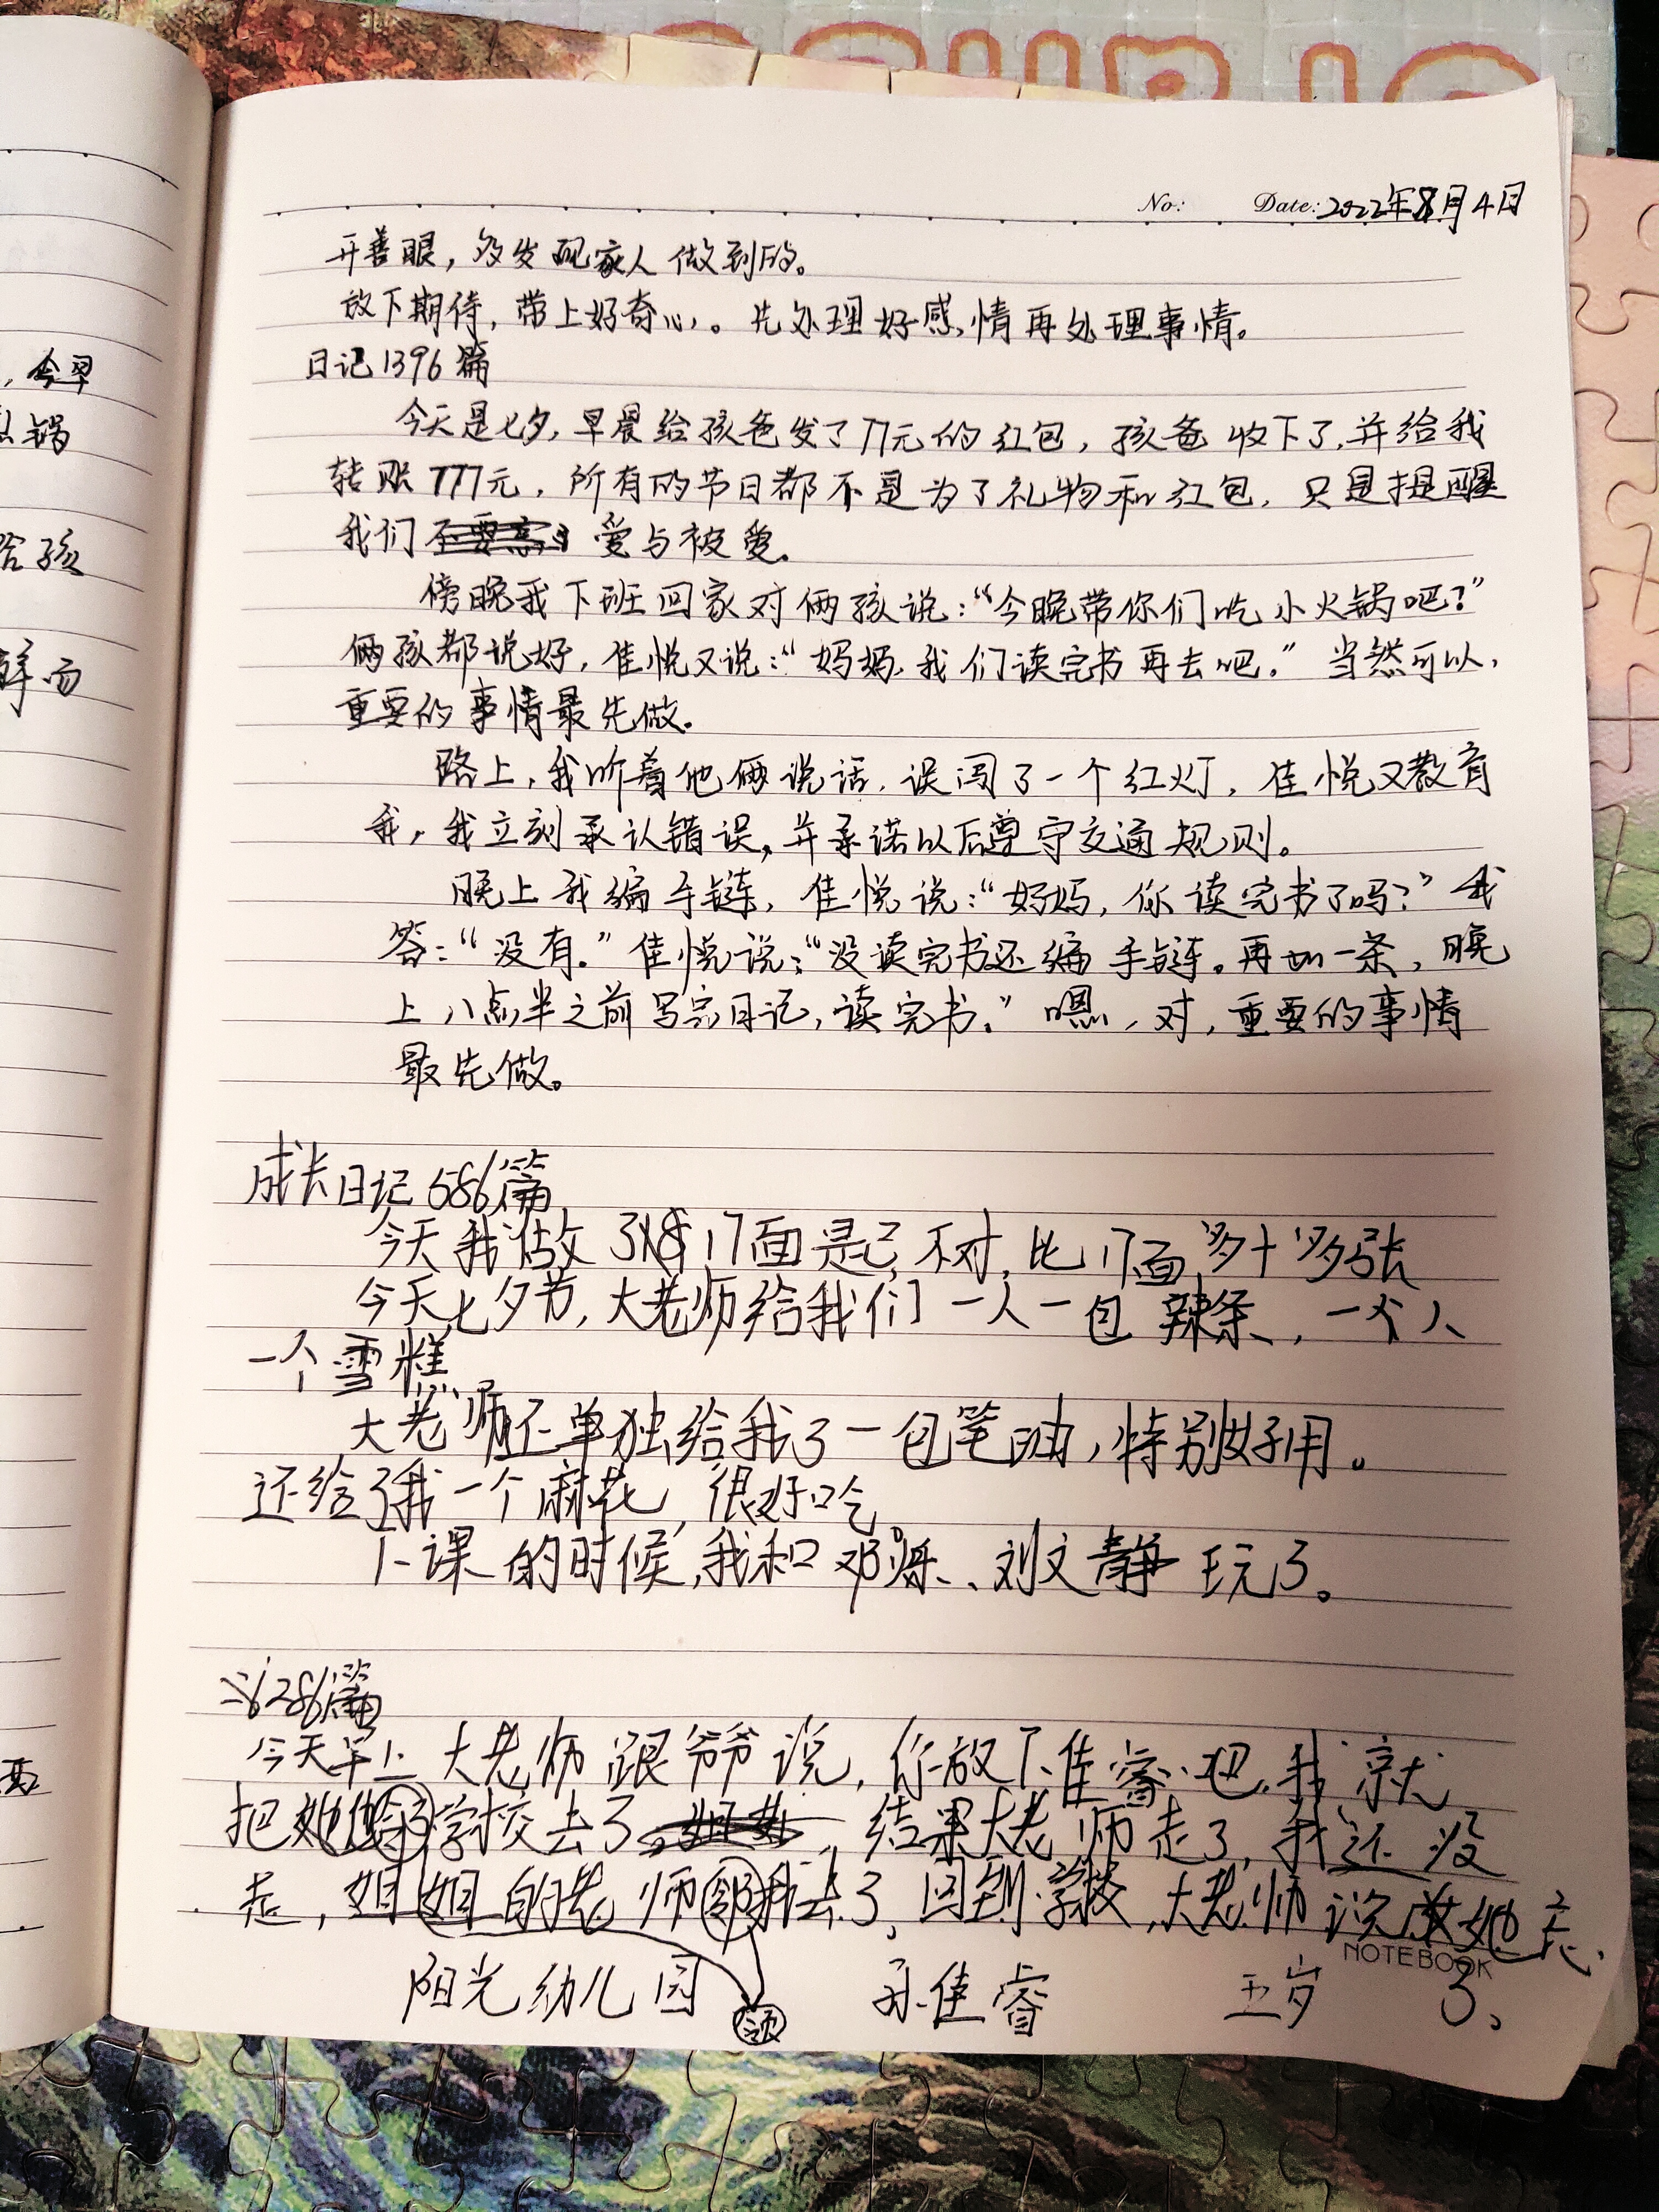 No: Date: 2022年8月4日
开善眼，多发现家人做到的。
放下期待，带上好奇心。先处理好感情再处理事情。
日记1396篇
今天是七夕，早晨给孩爸发了77元的红包，孩爸收下了，并给我
转账777元，所有的节日都不是为了礼物和红包，只是提醒
我们爱与被爱。
傍晚我下班回家对俩孩说：“今晚带你们吃小火锅吧？”
俩孩都说好，佳悦又说：“妈妈，我们读完书再去吧。”当然可以，
重要的事情最先做。
路上，我听着他俩说话，误闯了一个红灯，佳悦又教育
我，我立刻承认错误，并承诺以后遵守交通规则。
晚上我编手链，佳悦说：“妈妈，你读完书了吗？”我
答：“没有。”佳悦说：“没读完书还编手链。再加一条，晚
上八点半之前写完日记，读完书。”嗯，对，重要的事情
最先做。
成长日记686篇
今天我做 17面是 不对，比17面多十多张
今天七夕节，大老师给我们一人一包辣条，一个人
一个雪糕
大老师还单独给我了一包笔油，特别好用。
还给了我一个麻花，很好吃
下课的时候，我和邓烁、刘文静玩了。
286篇
今天早上大老师跟爷爷说，你放下佳睿吧，我就
把她 学校去了，结果大老师走了，我还没
走，姐姐的老师 我去了，回到学校，大老师说 她忘
了、
阳光幼儿园 孙佳睿 五岁
领
NOTEBOOK
今早
锅
给孩
而